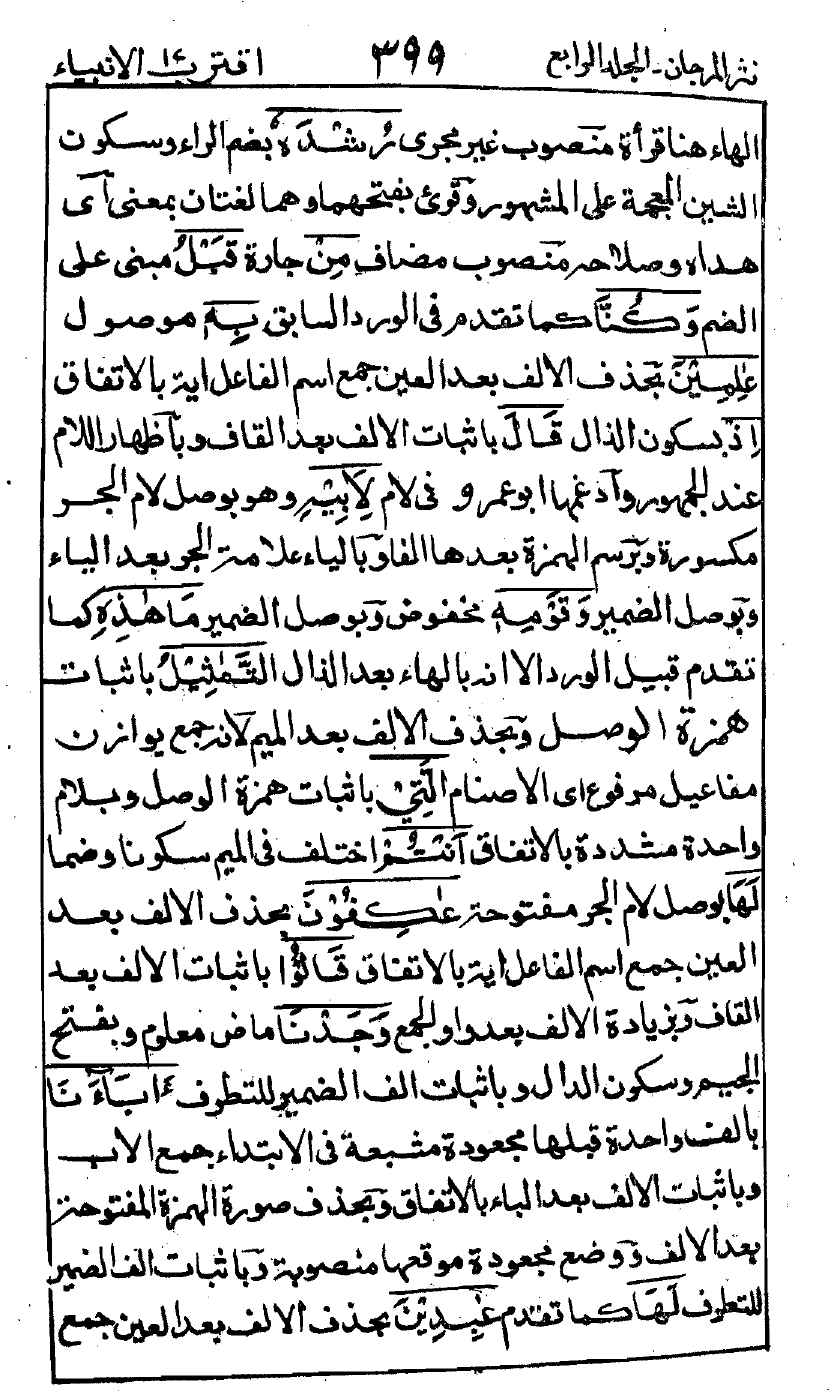 نثر المرجان - المجلد الرابع ٣٩٩ اقترب ١٧ الانبياء
الهاء هنا قرأة منصوب غير مجرى رُشْدَهٗ بضم الراء وسكون
الشين المعجمة على المشهور وقرئ بفتحهما وهما لغتان بمعنى اى
هداه وصلاحه منصوب مضاف مِنْ جارة قَبْلُ مبنى على
الضم وَكُنَّا كما تقدم فى الورد السابق بِهٖ موصول
عٰلِمِيْنَ بحذف الالف بعد العين جمع اسم الفاعل اية بالاتفاق
اِذْ بسكون الذال قَالَ باثبات الالف بعد القاف وباظهار اللام
عند الجمهور وادغمها ابو عمرو فى لام لِاَبِيْهِ وهو بوصل لام الجر
مكسورة وبرسم الهمزة بعدها الفا وبالياء علامة الجر بعد الباء
وبوصل الضمير وَقَوْمِهٖ مخفوض وبوصل الضمير مَا هٰذِهِ كما
تقدم قبيل الورد الا انه بالهاء بعد الذال التَّمَاثِيْلُ باثبات
همزة الوصل وبحذف الالف بعد الميم لانه جمع يوازن
مفاعيل مرفوع اى الاصنام الَّتِيْ باثبات همزة الوصل وبلام
واحدة مشددة بالاتفاق اَنْتُمْ اختلف فى الميم سكونا وضما
لَهَا بوصل لام الجر مفتوحة عٰكِفُوْنَ بحذف الالف بعد
العين جمع اسم الفاعل اية بالاتفاق قَالُوْا باثبات الالف بعد
القاف وبزيادة الالف بعد واو الجمع وَجَدْنَا ماض معلوم وبفتح
الجيم وسكون الدال وباثبات الف الضمير للتطرف ءَابَآءَنَا
بالف واحدة قبلها مجعودة مشبعة فى الابتداء جمع الاب
وباثبات الالف بعد الباء بالاتفاق وبحذف صورة الهمزة المفتوحة
بعد الالف ووضع مجعودة موقعها منصوبة وباثبات الف الضمير
للتطرف لَهَا كما تقدم عٰبِدِيْنَ بحذف الالف بعد العين جمع